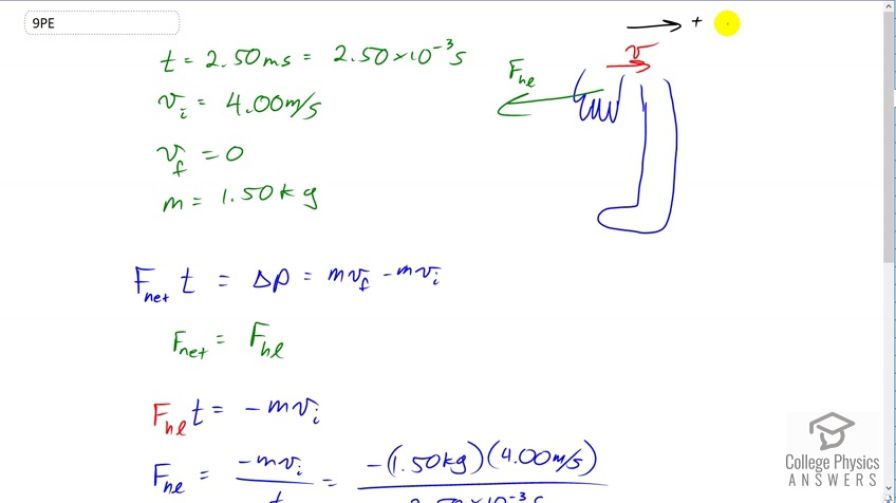 9PE
t = 2.50ms = 2.50×10⁻³s
v_i = 4.00m/s
v_f = 0
m = 1.50kg
+
v
F_he
F_net t = Δp = mv_f - mv_i
F_net = F_he
F_he t = -mv_i
F_he = -mv_i / t = -(1.50kg)(4.00m/s) / 2.50×10⁻³s
College Physics
ANSWERS